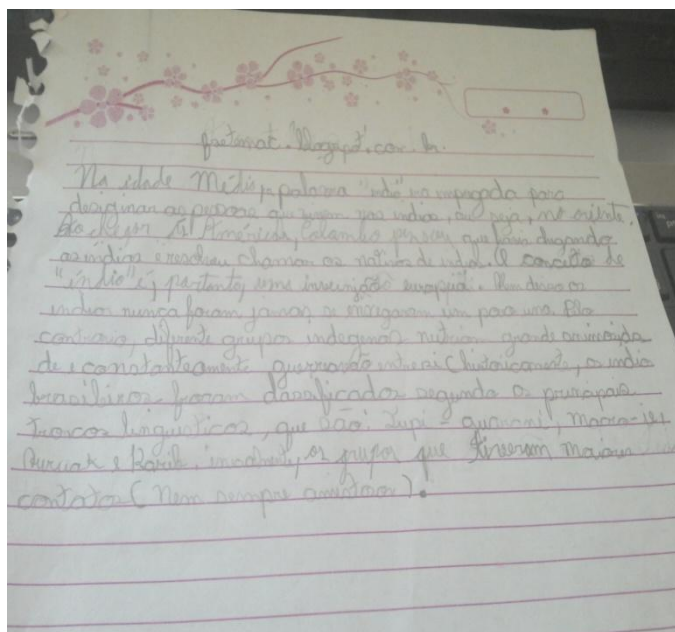 blogspot.com.br
Na idade Média, a palavra "índio" era empregada para
designar as pessoa que vivem nas índias, ou seja, no oriente.
Ao chegar a América, Colombo pensou que havia chegando
as índias e resolveu chamar os nativos de índios. O conceito de
"índio" é, portanto, uma invenção européia. os
índios nunca foram jamais se enxergaram um povo uno. Pelo
contrario, diferente grupos indegenas nutriam grande animosida
de e constantemente entre si historicamente, os indio
brasileiros foram classificados segundo os principais
troncos linguisticos, que são: Tupi-guarani, macro-jê
Aruak e Karib. inicialmente, os grupos que tiveram maiores
contatos (Nem sempre amistosos).